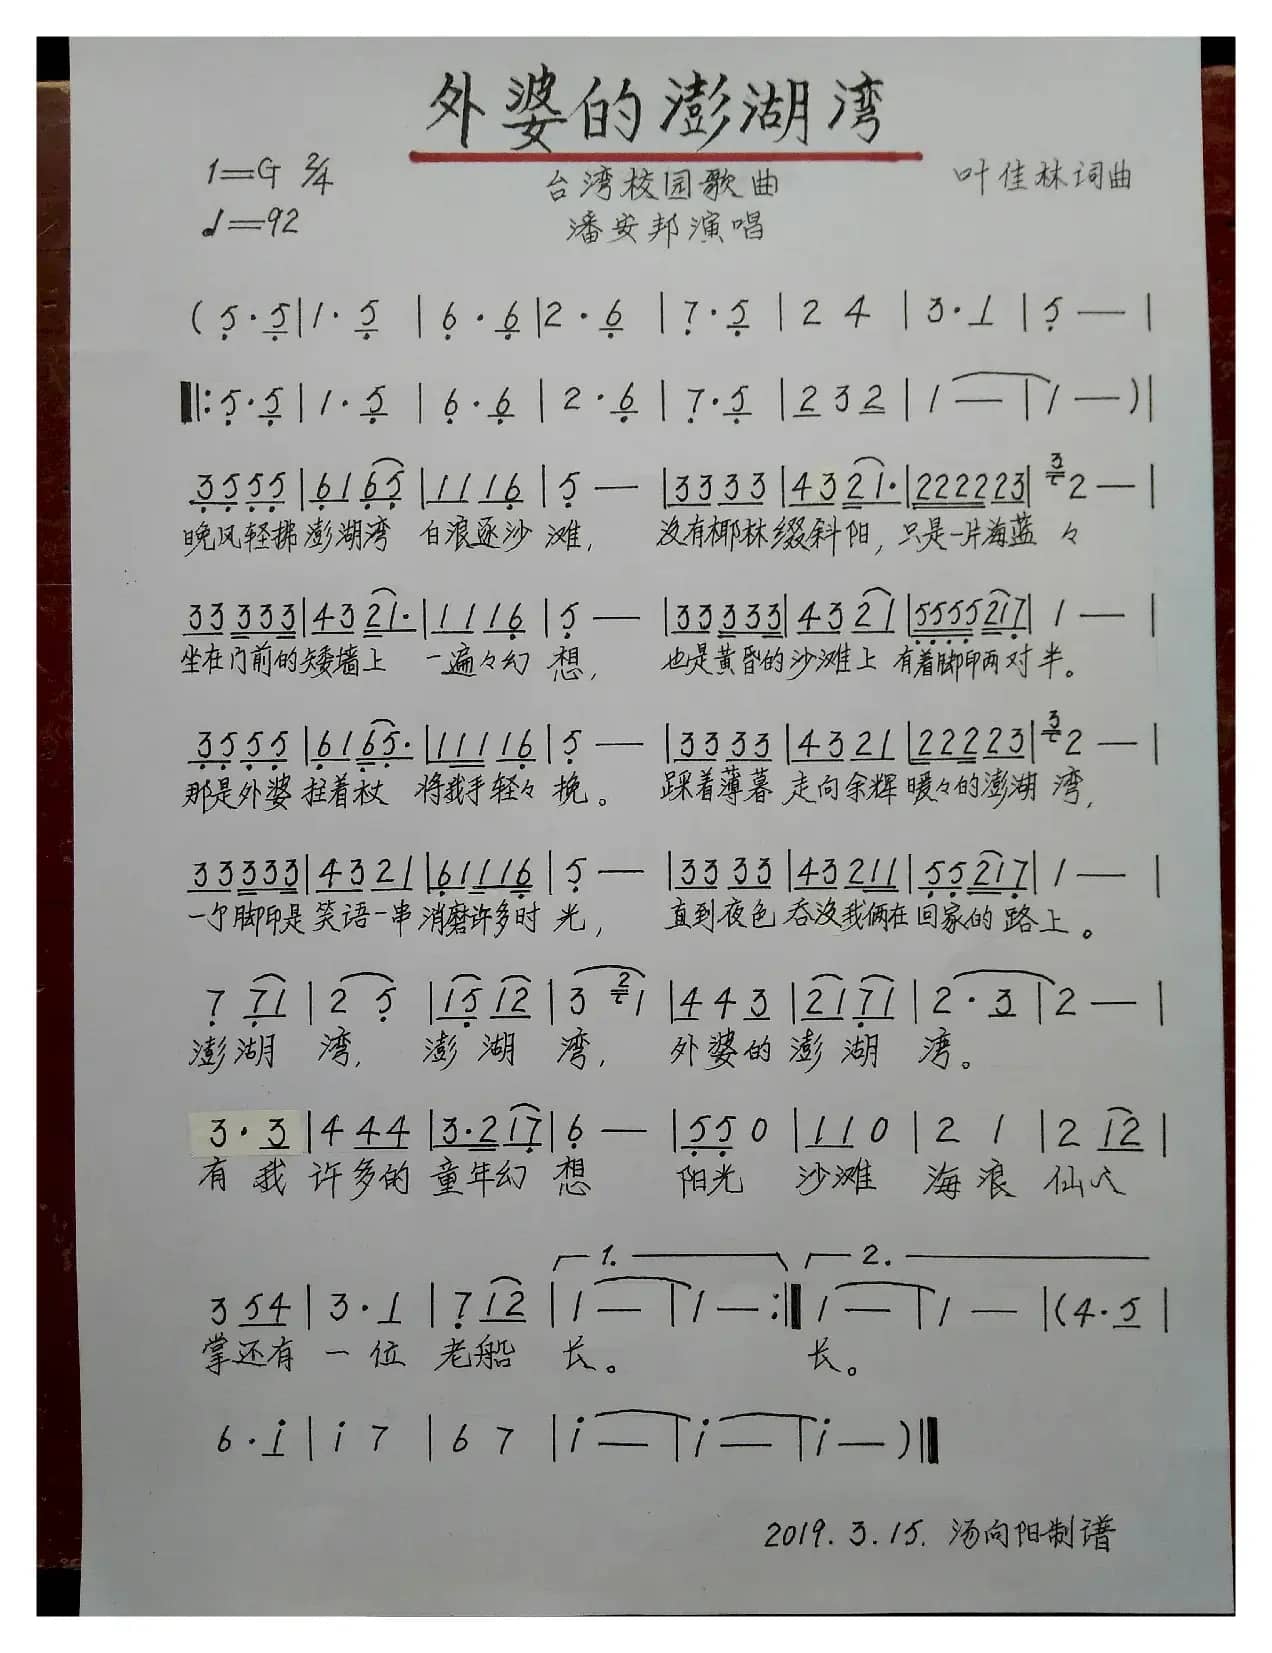 外婆的澎湖湾
1=G 2/4
台湾校园歌曲
叶佳林词曲
♩=92
潘安邦演唱
(5·5|1·5|6·6|2·6|7·5|2 4|3·1|5—|
‖:5·5|1·5|6·6|2·6|7·5|2 3 2|1—|1—)|
3555|6165|1116|5—|3333|4321·|222223|3 2—|
晚风轻拂澎湖湾 白浪逐沙滩, 没有椰林缀斜阳, 只是一片海蓝々
33333|4321·|1116|5—|33333|4321|5555217|1—|
坐在门前的矮墙上 一遍々幻想, 也是黄昏的沙滩上 有着脚印两对半。
3555|6165·|11116|5—|3333|4321|222223|3 2—|
那是外婆拄着杖 将我手轻々挽。 踩着薄暮 走向余辉 暖々的澎湖湾,
33333|4321|61116|5—|3333|43211|55217|1—|
一个脚印是笑语一串 消磨许多时光, 直到夜色吞没我俩在回家的路上。
7 71|2 5|15 12|3 2 1|4 4 3|21 71|2·3|2—|
澎湖 湾, 澎湖 湾, 外婆的澎湖 湾。
3·3|4 44|3·2 17|6—|55 0|11 0|2 1|2 12|
有我 许多的 童年幻 想 阳光 沙滩 海浪 仙人
1. 2.
3 54|3·1|7 12|1—|1—:‖1—|1—|(4·5|
掌还有 一位 老船 长。 长。
6·i|i 7|6 7|i—|i—|i—)‖
2019.3.15. 汤向阳制谱